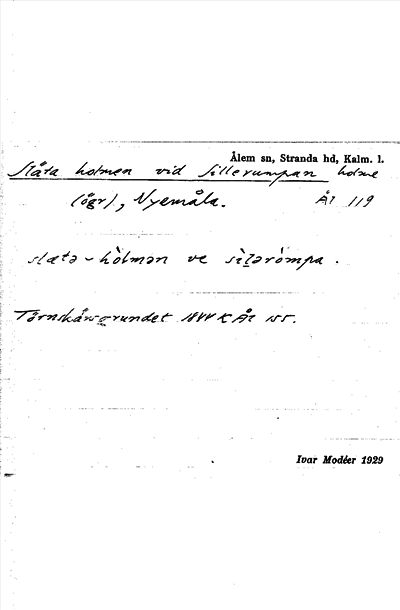 Ålem sn, Stranda hd, Kalm. l.
Slåta holmen vid Sillerumpan holme
(ögr), Nyemåla. Ål 119
slæta-hòlmən ve sìlərömpa.
Törnskärsgrundet 1844 K Ål 155.
Ivar Modéer 1929